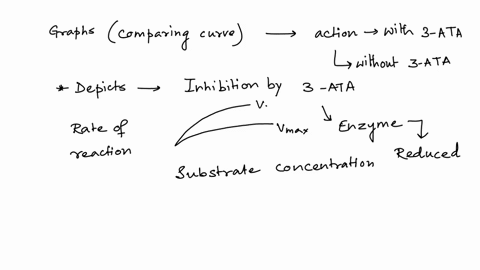 Graphs (comparing curve) → action → with 3-ATA
↳ without 3-ATA
* Depicts → Inhibition by 3-ATA
V.
Rate of reaction
Vmax
Enzyme
Reduced
Substrate concentration